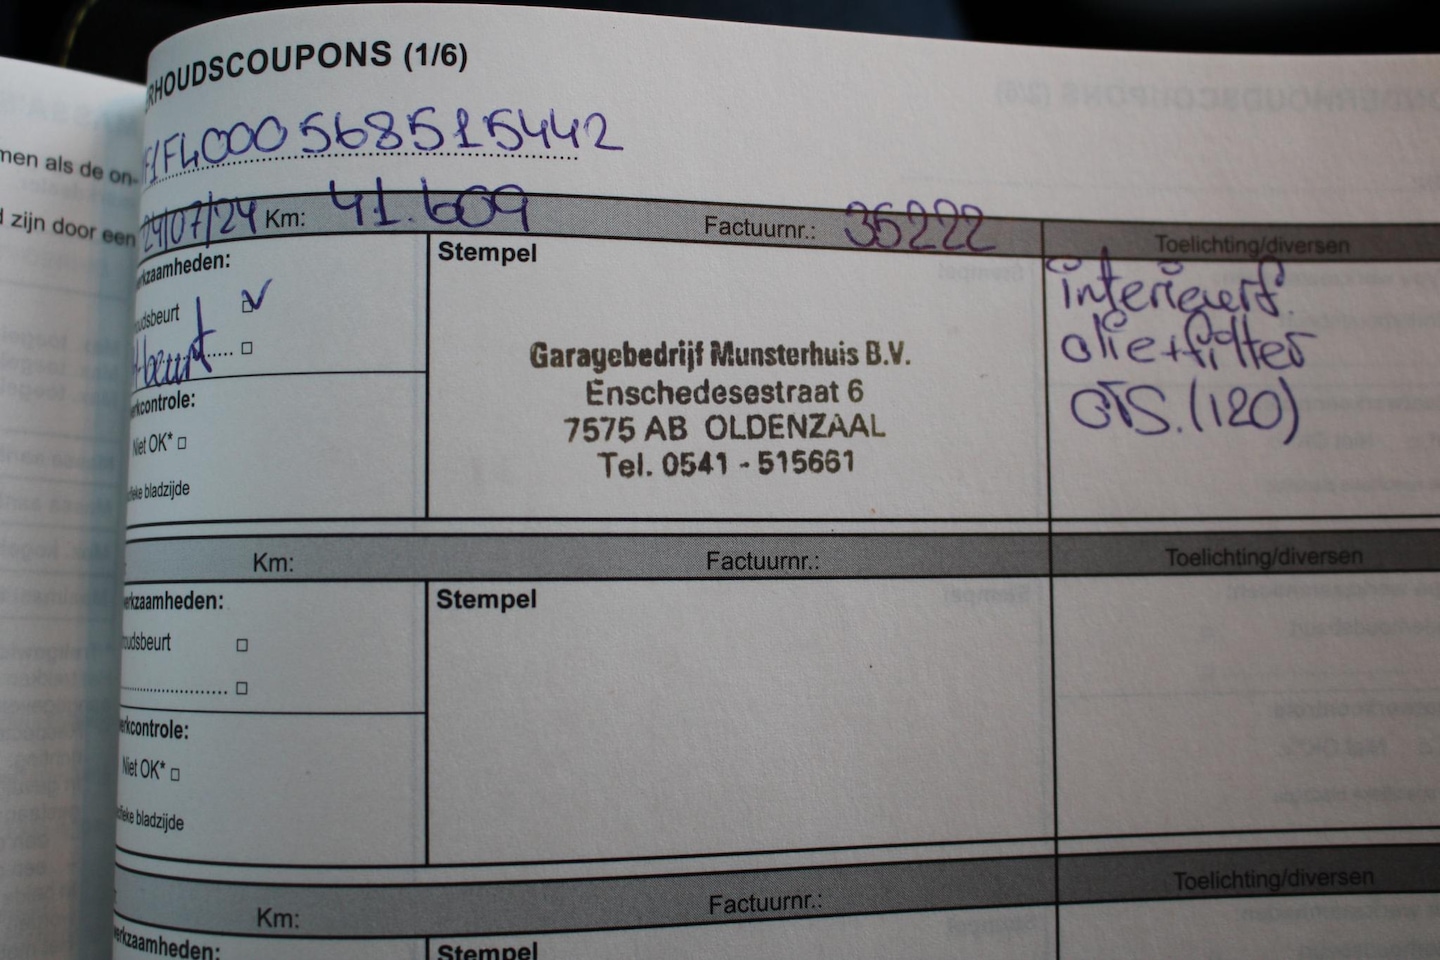 RHOUDSCOUPONS (1/6)
F1FL000568515442
men als de on-
d zijn door een
24/07/24 Km: 41.609 Factuurnr.: 35222 Toelichting/diversen
rkzaamheden:
Stempel
oudsbeurt
beurt
interieurf
olie+filter
OTS.(120)
Garagebedrijf Munsterhuis B.V.
Enschedesestraat 6
7575 AB OLDENZAAL
Tel. 0541 - 515661
rkcontrole:
Niet OK*
fieke bladzijde
Km: Factuurnr.: Toelichting/diversen
erkzaamheden:
Stempel
oudsbeurt
erkcontrole:
Niet OK*
fieke bladzijde
Km: Factuurnr.: Toelichting/diversen
rkzaamheden:
Stempel